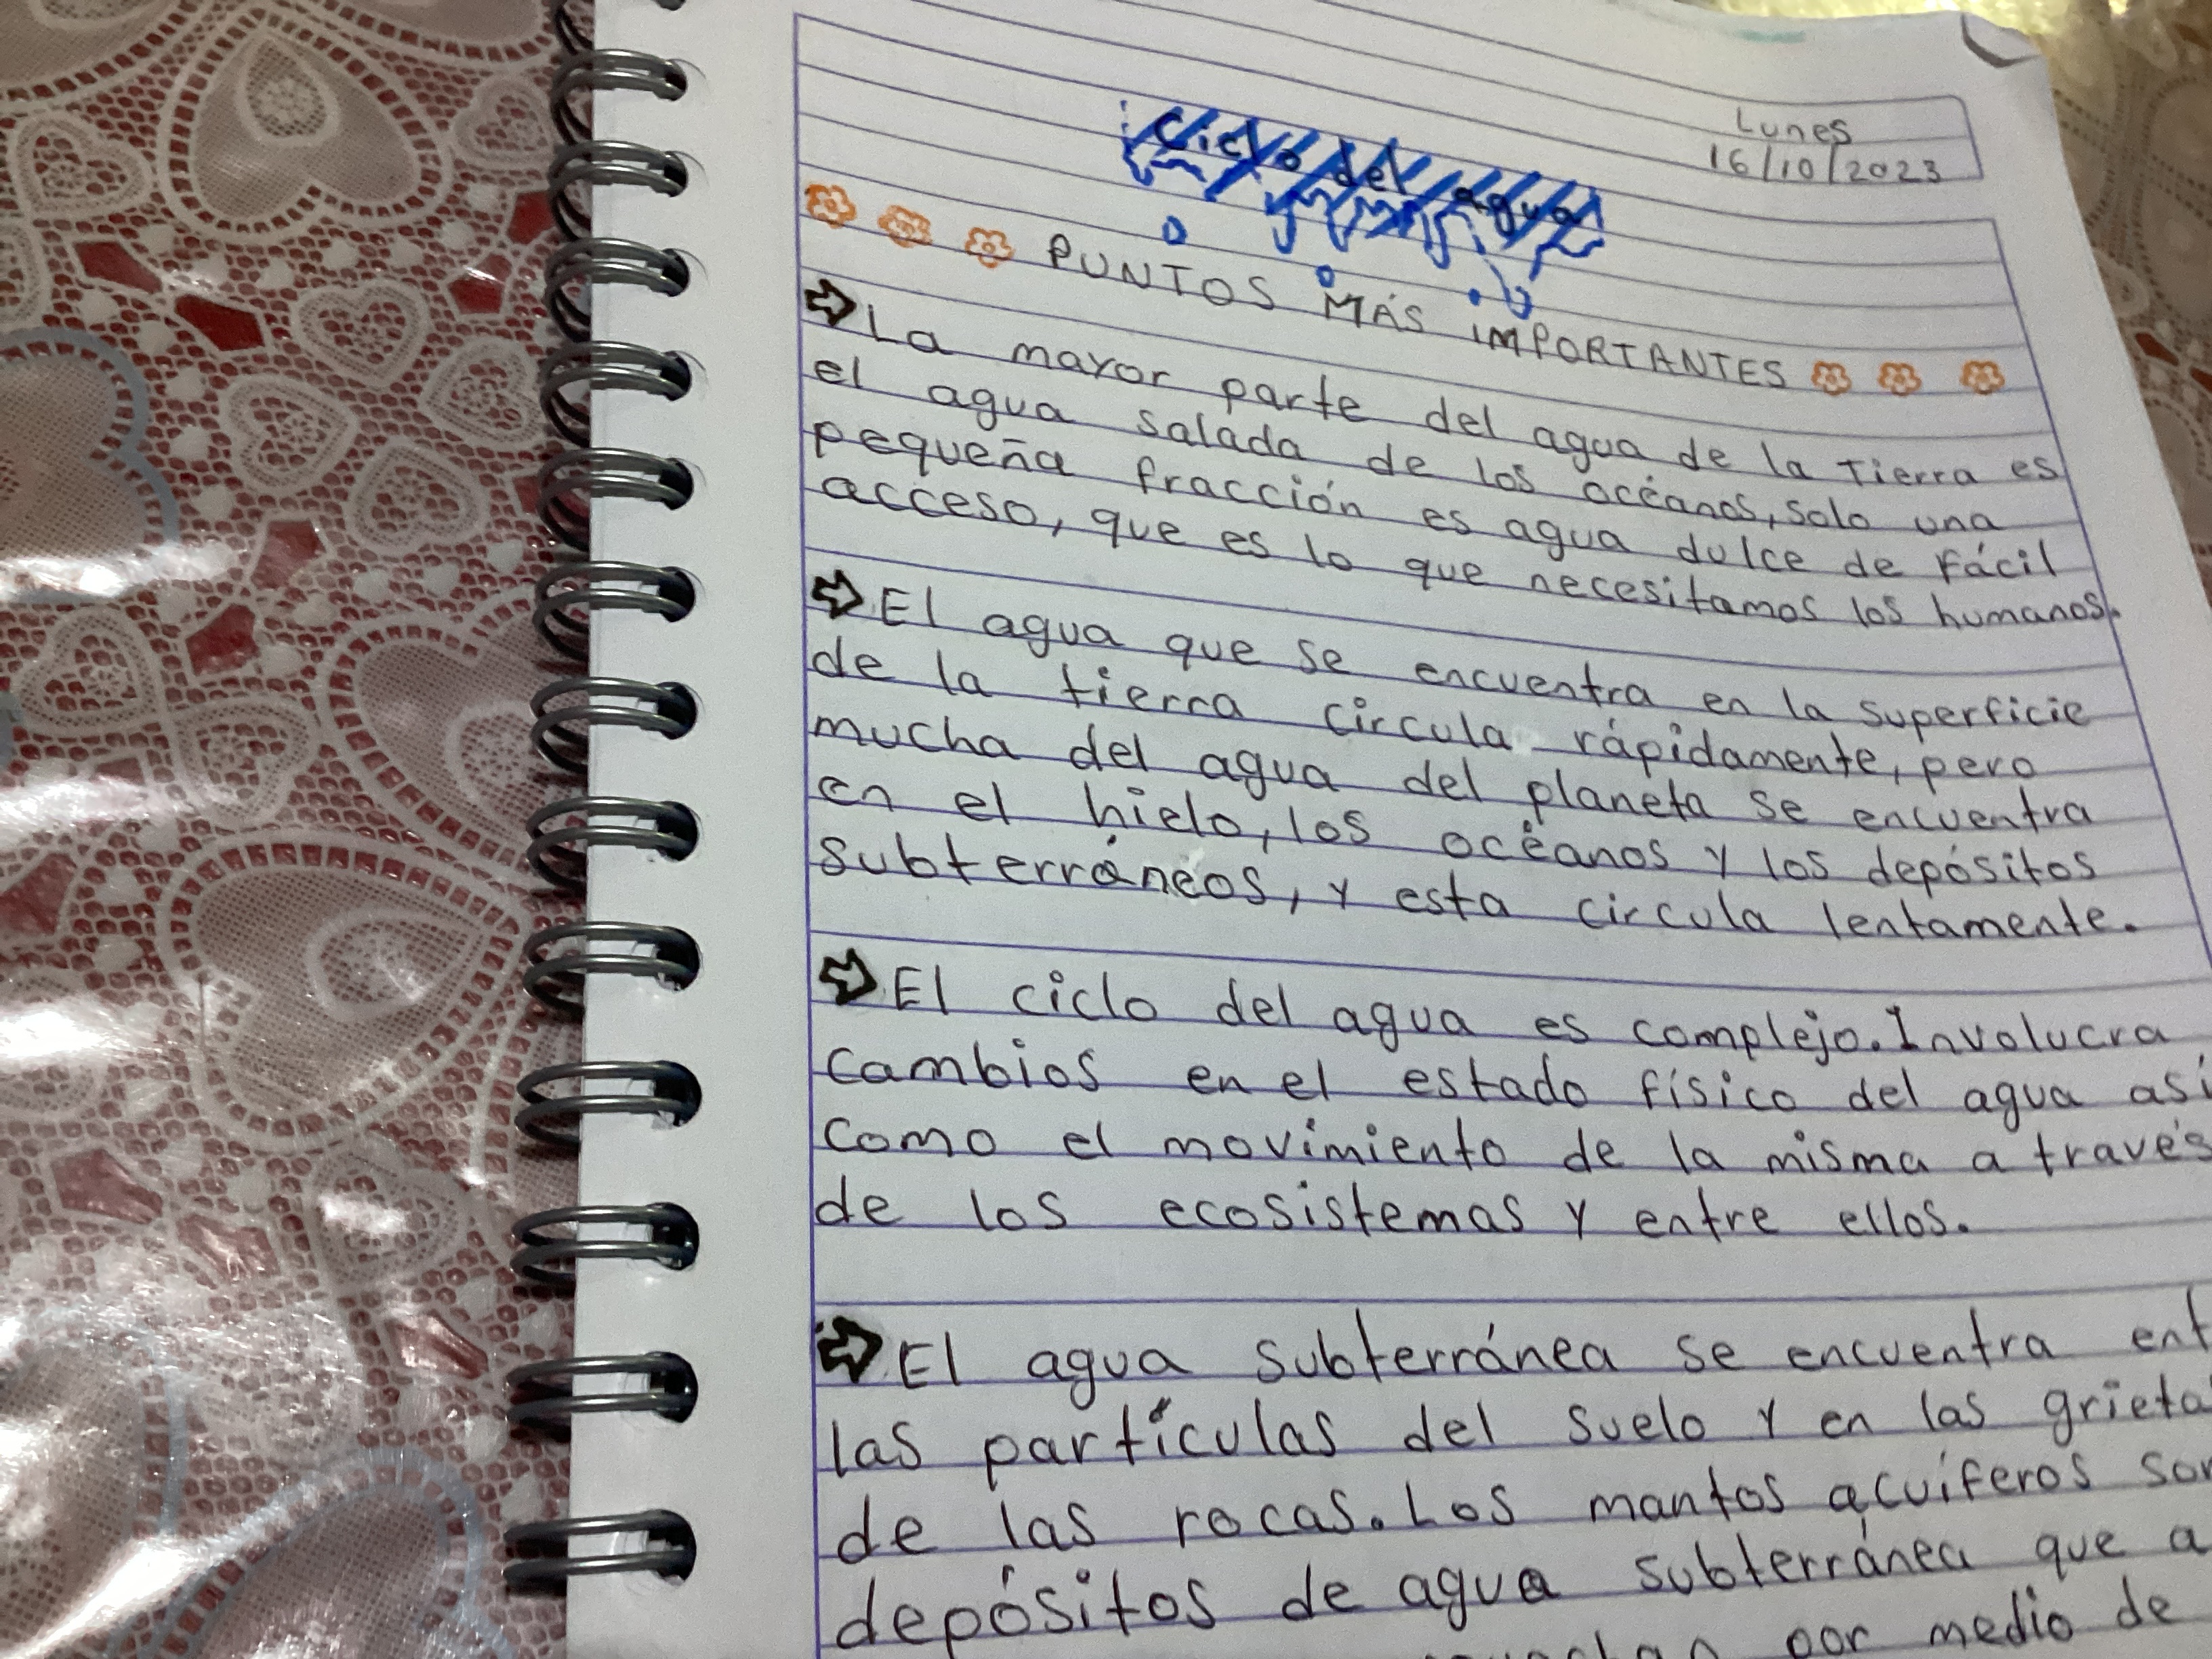 Lunes
16/10/2023
Ciclo del agua
PUNTOS MÁS IMPORTANTES
La mayor parte del agua de la Tierra es
el agua salada de los océanos, solo una
pequeña fracción es agua dulce de fácil
acceso, que es lo que necesitamos los humanos.
El agua que se encuentra en la superficie
de la tierra circula rápidamente, pero
mucha del agua del planeta se encuentra
en el hielo, los océanos y los depósitos
subterráneos, y esta circula lentamente.
El ciclo del agua es complejo. Involucra
cambios en el estado físico del agua así
como el movimiento de la misma a través
de los ecosistemas y entre ellos.
El agua subterránea se encuentra ent
las partículas del suelo y en las grieta
de las rocas. Los mantos acuíferos son
depósitos de agua subterránea que a
por medio de